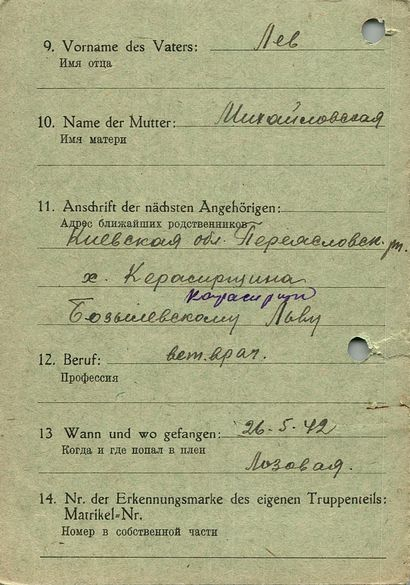 9. Vorname des Vaters: Лев
Имя отца
10. Name der Mutter: Михайловская
Имя матери
11. Anschrift der nächsten Angehörigen:
Адрес ближайших родственников
Киевская обл. Переясловск. рт.
х. Керасирщина
карасирщи
Бозылевскому Льву
12. Beruf: вет. врач.
Профессия
13 Wann und wo gefangen: 26-5-42
Когда и где попал в плен
Лозовая.
14. Nr. der Erkennungsmarke des eigenen Truppenteils:
Matrikel-Nr.
Номер в собственной части